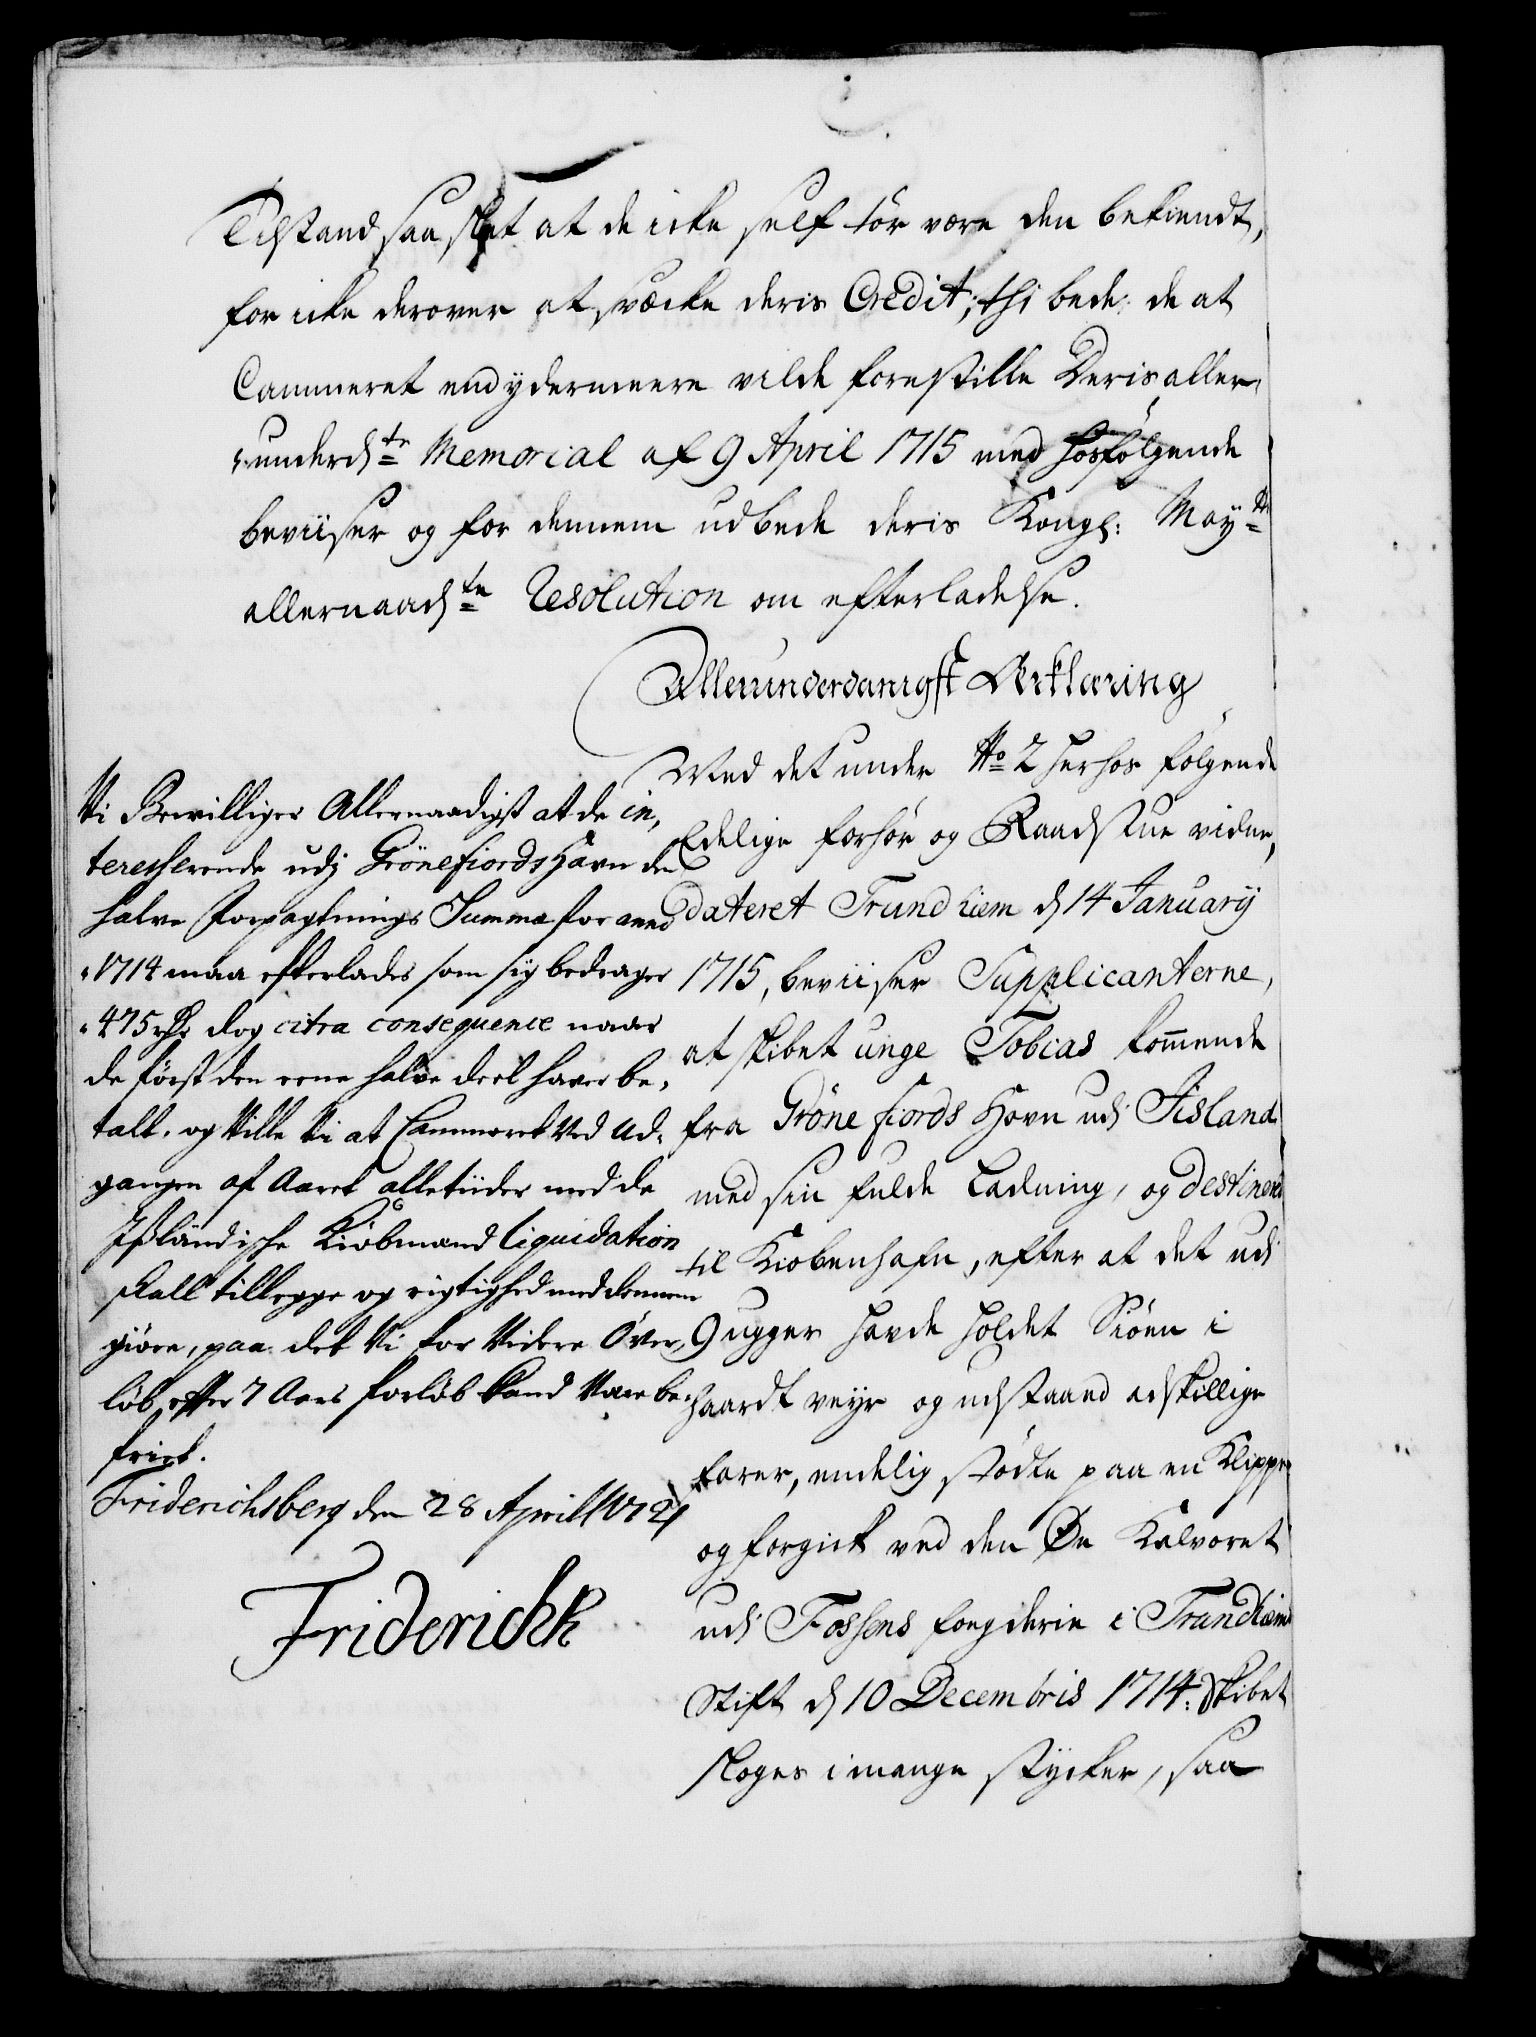 Tilstand saa slet at de icke self tör være den bekiendt,
for icke derover at svæcke deris Credit; thi bede de at
Cammeret end ydermeere vilde forestille Deris aller-
underd:te Memorial af 9 April 1715 med hosfölgende
beviiser og for dennem udbede deris Kongl: May:ts
allernaad:te Resolution om efterladelse.
Allerunderdanigst Erklæring
Med det under No 2 herhos fölgende
Edelige forhör og Raadstue vidne,
dateret Trundhiem d 14 Januarij
1715, beviiser Supplicanterne,
at skibet unge Tobias kom̄ende
fra Gröne fiords Havn udi Jisland
med sin fulde Ladning, og destinered
til Kiobenhafn, efter at det udi
9 uger hafde holdet Siöen i
haardt veyr og udstaaed adskillige
farer, endelig stödte paa en Klippe
og forgick ved den Øe Kalvoret
udi Fossens fogderie i Trundhiems
Stift d 10 Decembris 1714. Skibet
sloges i mange stycker, saa
Vi Bevilliger Allernaadigst at de in-
teresserende udj Grönefiords Havn den
halve Forpagtnings Summa for anno
1714 maa efterlades som sig bedrager
475 rdr dog citra consequence naar
de först den eene halve deel haver be-
talt. og Ville Vi at Cammeret Ved Ud-
gangen af Aaret alletiider med de
Jßländische Kiöbmænd liquidation
skall tillegge og rigtighed med dennem
giöre, paa det Vi for Videre Över-
löb effter 7 Aars forlöb kand Være be-
friet.
Friderichsberg den 28 Aprill 1721
Friderich R